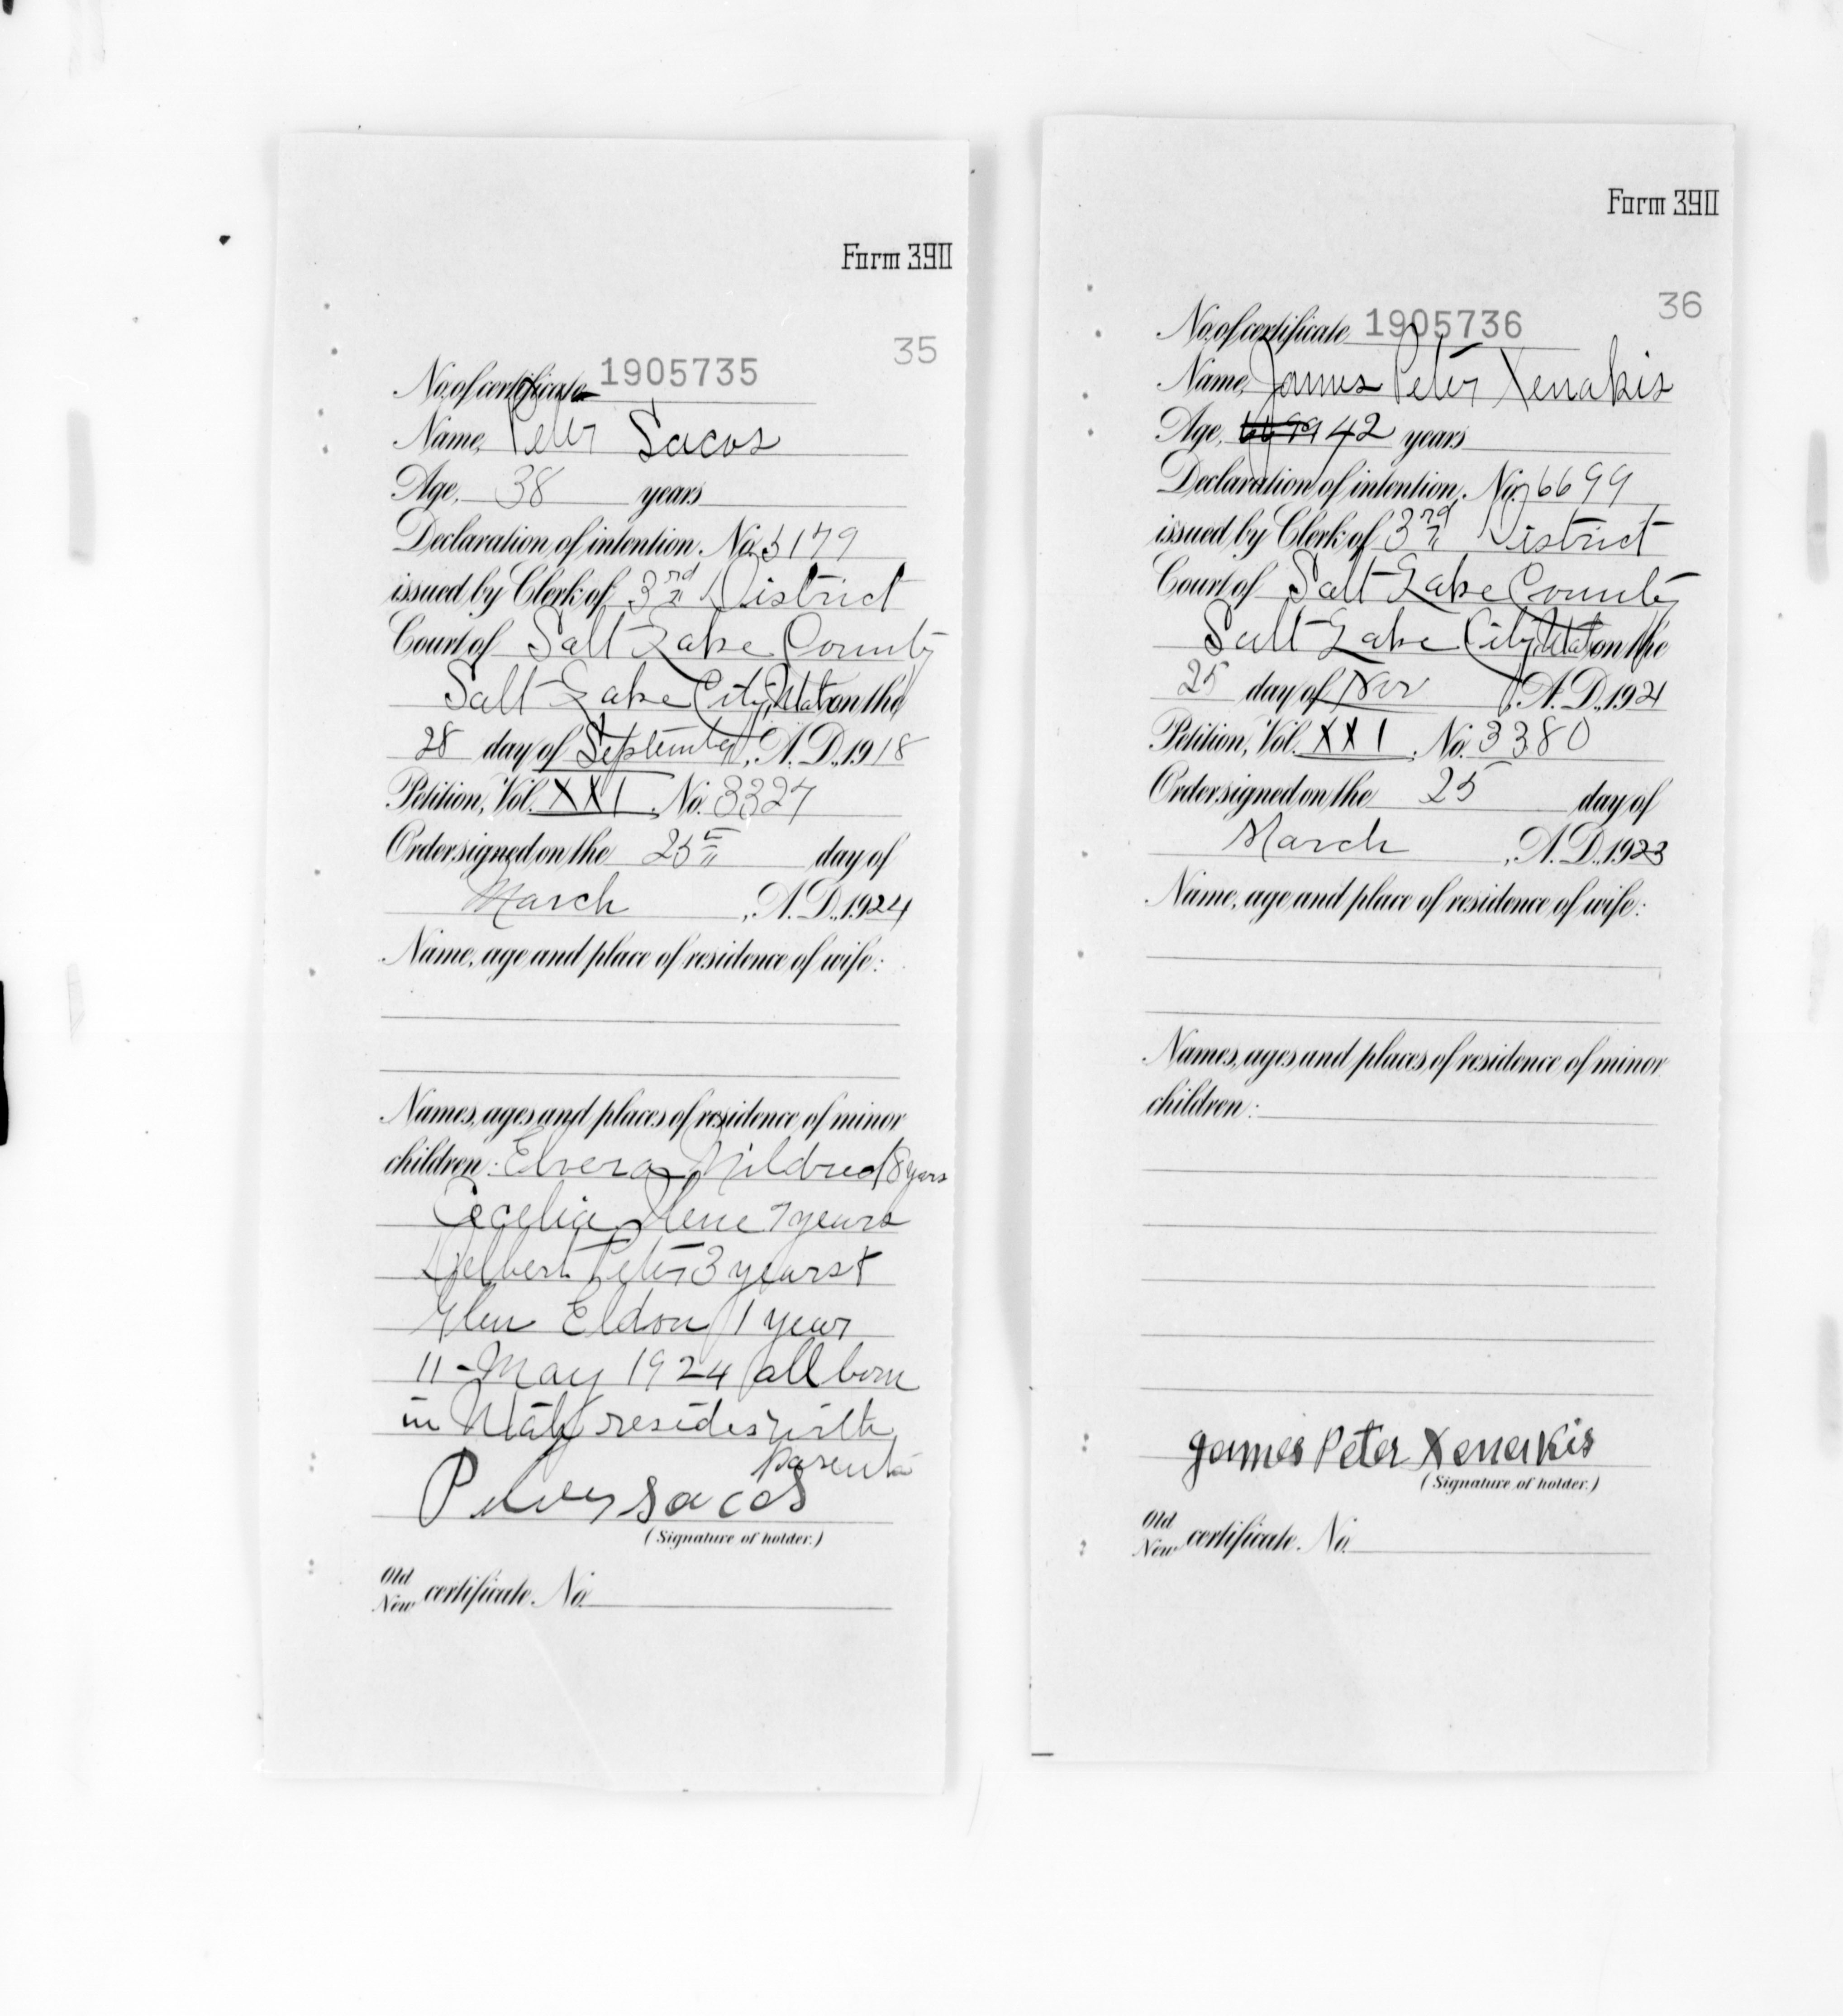 Form 390
35
No. of certificate 1905735
Name, Peter Sacos
Age, 38 years
Declaration of intention, No. 5179
issued by Clerk of 3rd District
Court of Salt Lake County
Salt Lake City, Utah on the
28 day of September, A.D. 1918
Petition, Vol. XXI, No. 3327
Order signed on the 25 day of
March, A.D. 1924
Name, age and place of residence of wife:
Names, ages and places of residence of minor
children: Elvera Mildred 8 years
Cecelia Ilene 7 years
Delbert Peter 3 years &
Glen Eldon 1 year
11-May 1924 all born
in Utah resides with
parents
Peter Sacos
(Signature of holder.)
Old
New certificate. No.
Form 390
36
No. of certificate 1905736
Name, James Peter Xenakis
Age, 42 years
Declaration of intention, No. 6699
issued by Clerk of 3rd District
Court of Salt Lake County
Salt Lake City, Utah on the
25 day of Nov, A.D. 1921
Petition, Vol. XXI, No. 3380
Order signed on the 25 day of
March, A.D. 1923
Name, age and place of residence of wife:
Names, ages and places of residence of minor
children:
James Peter Xenakis
(Signature of holder.)
Old
New certificate. No.